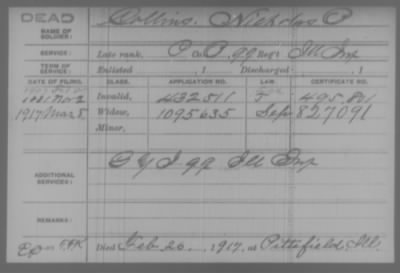 DEAD
NAME OF SOLDIER: Collins, Nicholas P
SERVICE: Late rank, P Co. , 99 Reg't Ill Inf
TERM OF SERVICE: Enlisted , 1 Discharged , 1
DATE OF FILING. CLASS. APPLICATION NO. LAW. CERTIFICATE NO.
Nov 2 Invalid, 432511 495.801
1917 Mar 8 Widow, 1095635 Sep 827091
Minor,
ADDITIONAL SERVICES: 99 Ill Inf
REMARKS:
Died Feb 26, 1917, at Pittsfield, Ill.